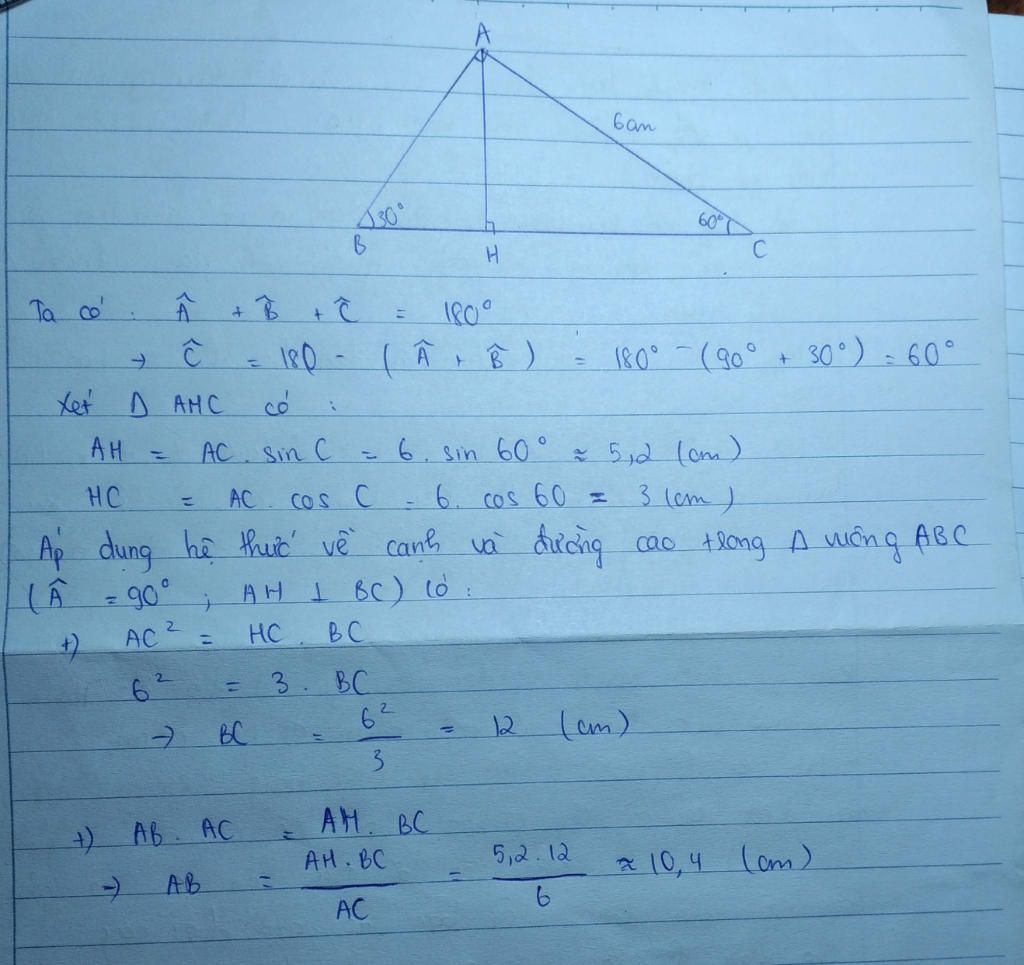 A
6cm
30°
60°
B
H
C
Ta có : Â + B̂ + Ĉ = 180°
→ Ĉ = 180 - ( Â + B̂ ) = 180° - (90° + 30°) = 60°
Xét Δ AHC có :
AH = AC . sin C = 6 . sin 60° ≈ 5,2 (cm)
HC = AC . cos C = 6 . cos 60 = 3 (cm)
Áp dụng hệ thức về cạnh và đường cao trong Δ vuông ABC
( Â = 90° ; AH ⊥ BC) có :
+) AC² = HC . BC
6² = 3 . BC
→ BC = 6² / 3 = 12 (cm)
+) AB . AC = AH . BC
→ AB = AH . BC / AC = 5,2 . 12 / 6 ≈ 10,4 (cm)